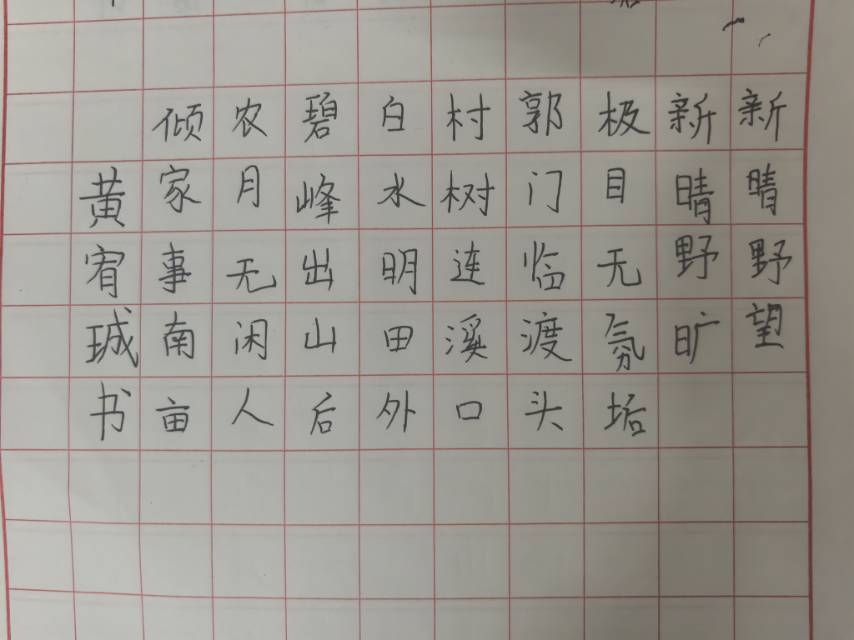 新晴野望
新晴野旷
极目无氛垢
郭门临渡头
村树连溪口
白水明田外
碧峰出山后
农月无闲人
倾家事南亩
黄宥珹书